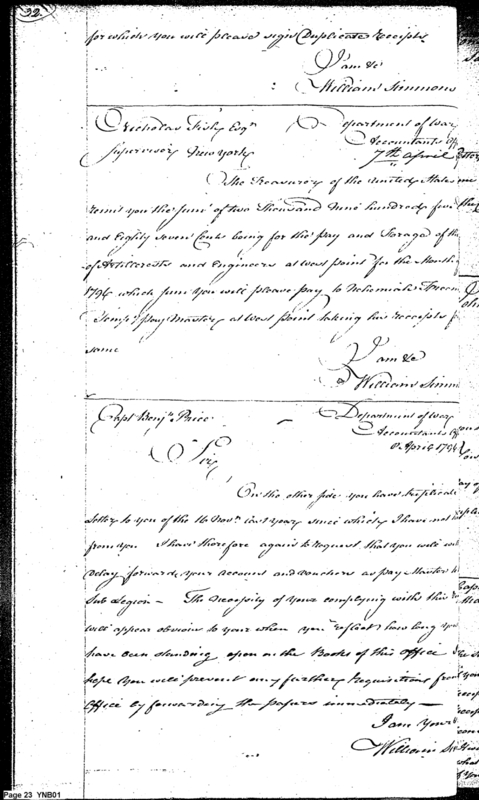 32.
for which you will please sign Duplicate Receipts
I am &c
William Simmons
Nicholas Fish Esqr
Department of War
Supervisor New York
Accountants Off
7th April
The Treasurer of the United States
remit you the sum of two thousand nine hundred
and Eighty Seven Cents being for the pay and Forage of the
of Artillerists and Engineers at West point for the Month
1796 which sum you will please pay to Nehemiah Freem
Temp: pay Master at West point taking his receipts f
same
I am &c
William Simm
Capt Benjn Price
Department of War
Accountants Off
April 1796
Sir
On the other side you have triplicate
letter to you of the 16 Novr last year since which I have not
from you I have therefore again to request that you will
delay forward your account and vouchers as pay Master
Sub Legion — The necessity of your complying with this
will appear obvious to you when you reflect how long you
have been standing open on the Books of this office
hope you will prevent any further requisitions from
Office by forwarding the papers immediately —
I am Your
William Si
Page 23 YNB01